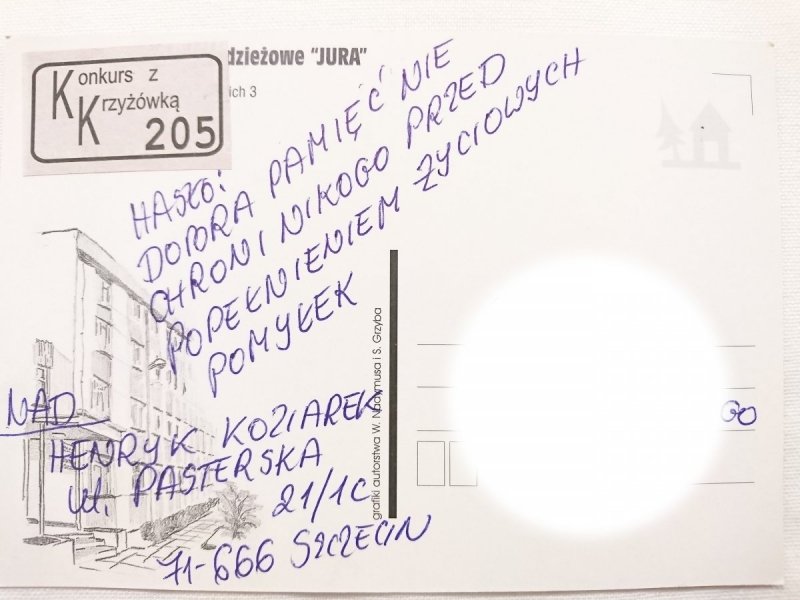 Konkurs z
Krzyżówką
205
dzieżowe "JURA"
ich 3
HASŁO:
DOBRA PAMIĘĆ NIE
CHRONI NIKOGO PRZED
POPEŁNIENIEM ŻYCIOWYCH
POMYŁEK
NAD
HENRYK KOZIAREK
ul. PASTERSKA
21/1C
71-666 SZCZECIN
grafiki autorstwa W. Nadymusa i S. Grzyba
GO